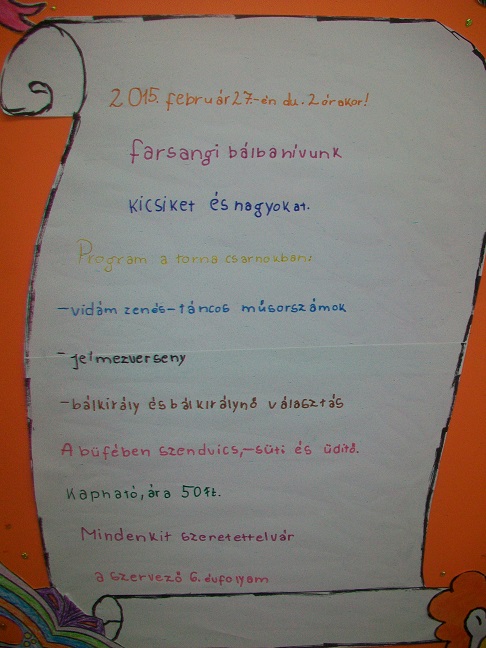 2015. február 27.-én du. 2 órakor!
farsangi bálba hívunk
kicsiket és nagyokat.
Program a torna csarnokban:
-vidám zenés-táncos műsorszámok
-jelmezverseny
-bálkirály és bálkirálynő választás
A büfében szendvics,-süti és üdítő.
Kapható, ára 50 ft.
Mindenkit szeretettel vár
a szervező 6. évfolyam